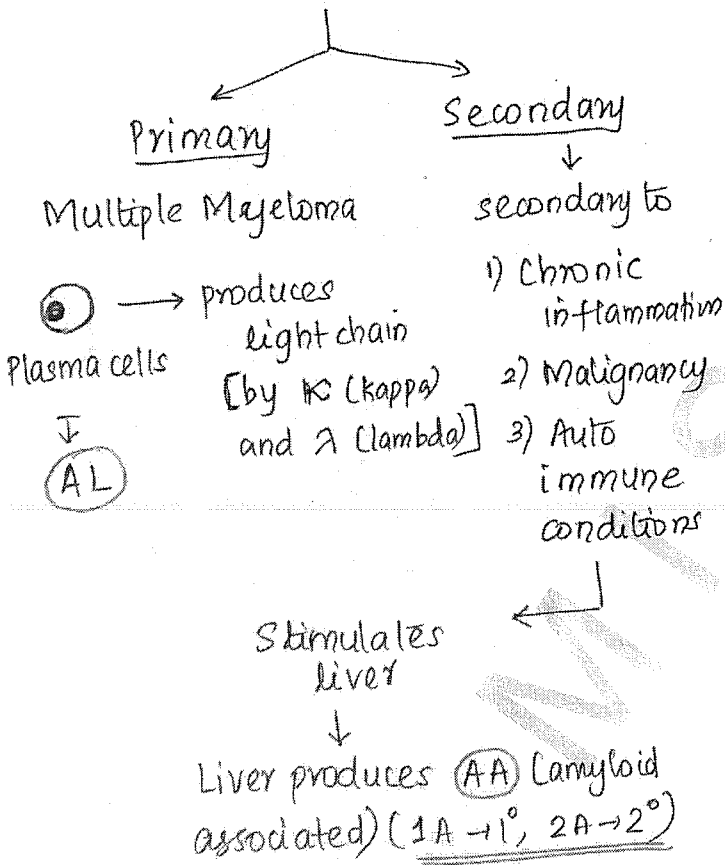 Primary
Multiple Myeloma
Plasma cells → produces
light chain
[by K (kappa)
and λ (lambda)]
↓
AL
Secondary
↓
secondary to
1) Chronic
inflammation
2) Malignancy
3) Auto
immune
conditions
Stimulates
liver
↓
Liver produces AA (amyloid
associated) (1A → 1°, 2A → 2°)